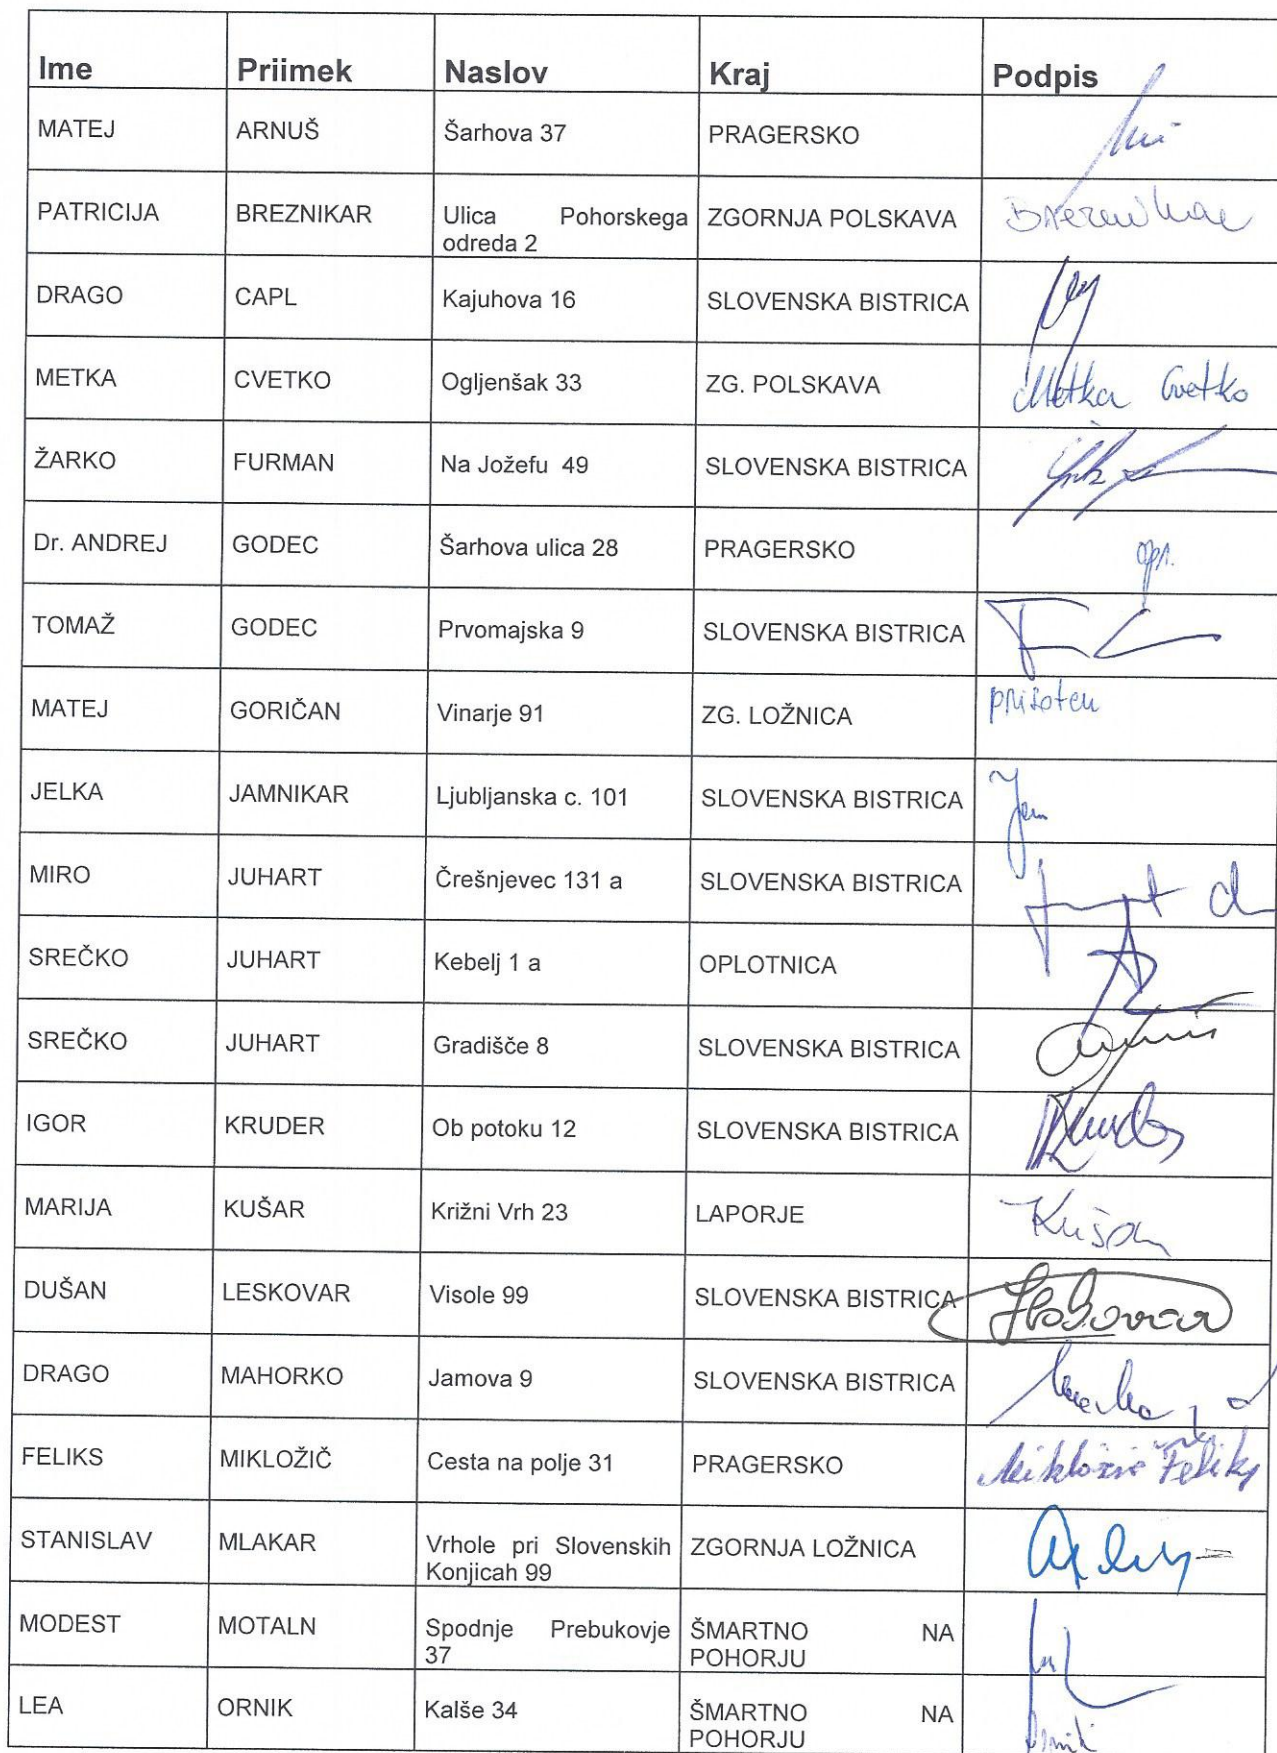 Ime Priimek Naslov Kraj Podpis
MATEJ ARNUŠ Šarhova 37 PRAGERSKO
PATRICIJA BREZNIKAR Ulica Pohorskega ZGORNJA POLSKAVA Breznikar
odreda 2
DRAGO CAPL Kajuhova 16 SLOVENSKA BISTRICA
METKA CVETKO Ogljenšak 33 ZG. POLSKAVA Metka Cvetko
ŽARKO FURMAN Na Jožefu 49 SLOVENSKA BISTRICA
Dr. ANDREJ GODEC Šarhova ulica 28 PRAGERSKO opr.
TOMAŽ GODEC Prvomajska 9 SLOVENSKA BISTRICA
MATEJ GORIČAN Vinarje 91 ZG. LOŽNICA prisoten
JELKA JAMNIKAR Ljubljanska c. 101 SLOVENSKA BISTRICA
MIRO JUHART Črešnjevec 131 a SLOVENSKA BISTRICA
SREČKO JUHART Kebelj 1 a OPLOTNICA
SREČKO JUHART Gradišče 8 SLOVENSKA BISTRICA
IGOR KRUDER Ob potoku 12 SLOVENSKA BISTRICA
MARIJA KUŠAR Križni Vrh 23 LAPORJE Kušar
DUŠAN LESKOVAR Visole 99 SLOVENSKA BISTRICA
DRAGO MAHORKO Jamova 9 SLOVENSKA BISTRICA
FELIKS MIKLOŽIČ Cesta na polje 31 PRAGERSKO Mikložič Feliks
STANISLAV MLAKAR Vrhole pri Slovenskih ZGORNJA LOŽNICA
Konjicah 99
MODEST MOTALN Spodnje Prebukovje ŠMARTNO NA
37 POHORJU
LEA ORNIK Kalše 34 ŠMARTNO NA
POHORJU Ornik